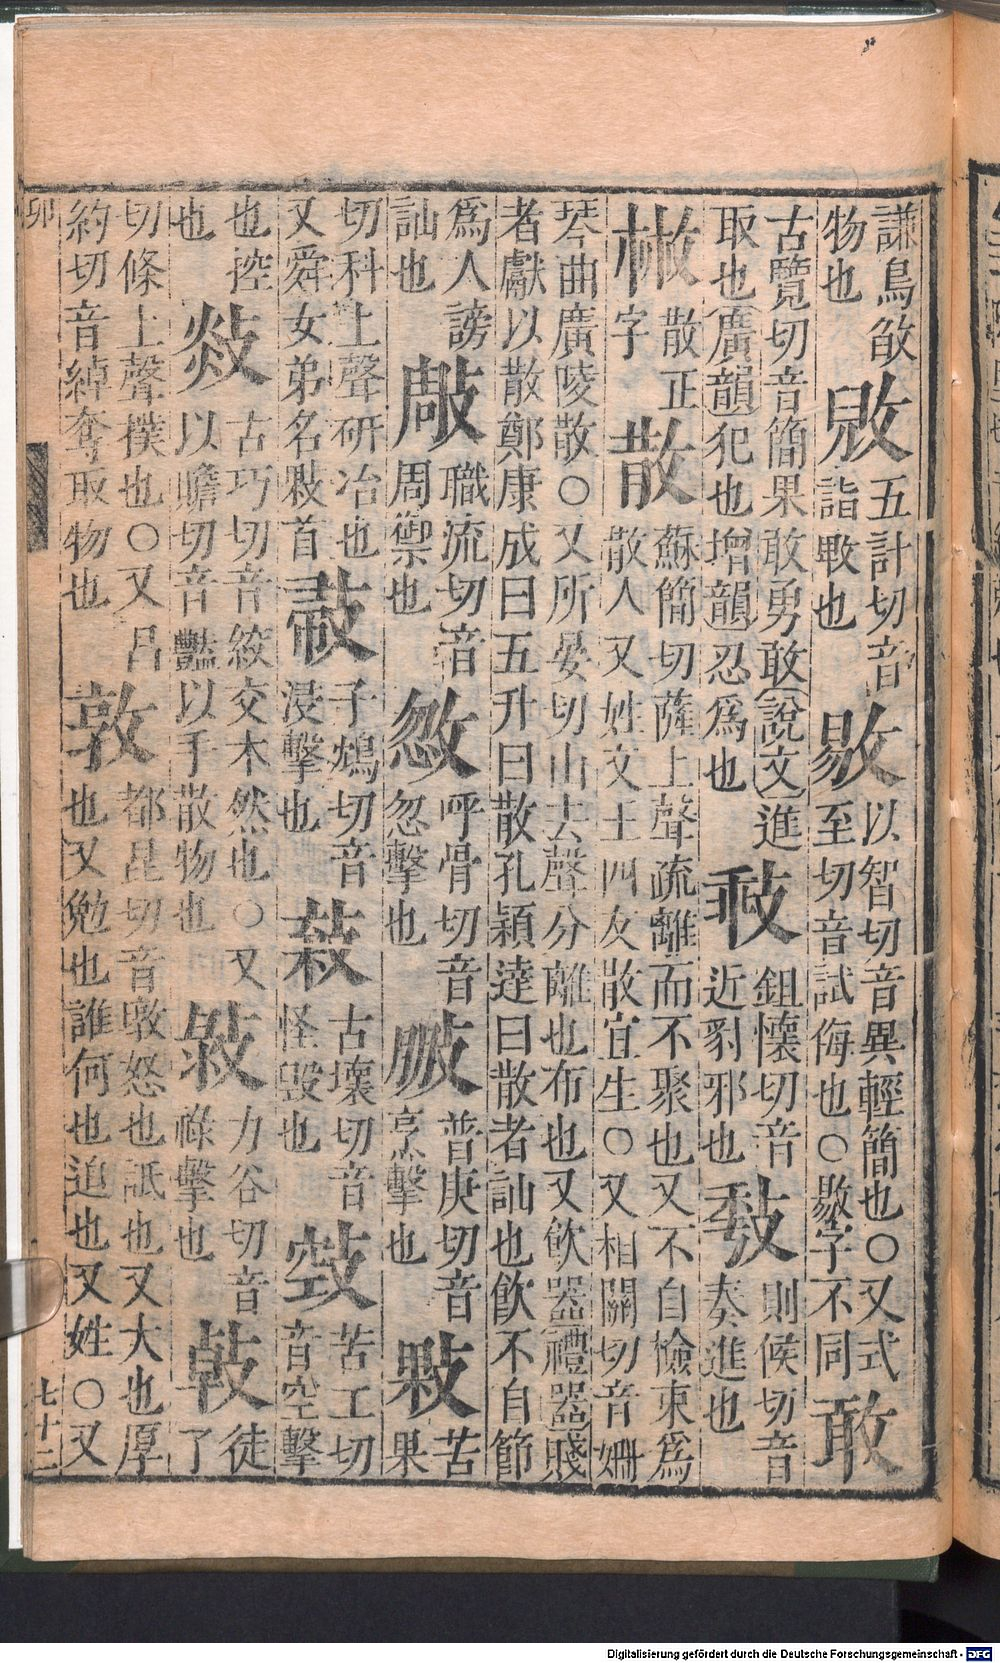 謙鳥物也五計切音詣也敡以智切音異輕簡也○又式至切音試侮也○字不同敢
古覽切音簡果敢勇敢說文進取也廣韻犯也增韻忍爲也鉏懷切音近豺邪也則候切音奏進也
㪔散正字散蘇簡切薩上聲疏離而不聚也又不自檢束爲散人又姓文王四友散宜生○又相關切音姍
琴曲廣陵散○又所晏切山去聲分離也布也又飲器禮器賤者獻以散鄭康成曰五升曰散孔穎達曰散者訕也飲不自節
爲人謗訕也職流切音周禦也呼骨切音忽擊也普庚切音烹擊也敤苦果
切科上聲研治也又舜女弟名敤首子鴆切音浸擊也古壞切音怪毀也苦工切音空擊
也控也古巧切音絞交木然也○又以贍切音豔以手散物也力谷切音祿擊也徒了
切條上聲撲也○又昌約切音綽奪取物也敦都昆切音墩怒也詆也又大也厚也又勉也誰何也迫也又姓○又
卯
七十二
Digitalisierung gefördert durch die Deutsche Forschungsgemeinschaft - DFG